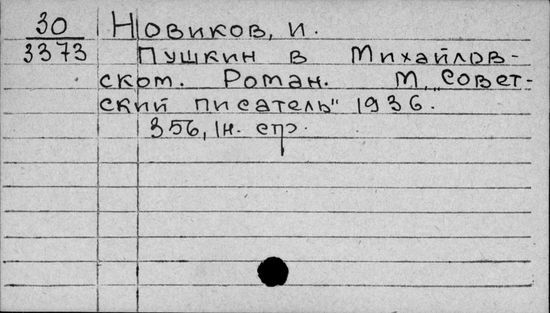 30 Новиков, И.
3373 Пушкин в Михайлов-
ском. Роман. М, "Совет-
ский писатель" 1936.
356, 1н. стр.